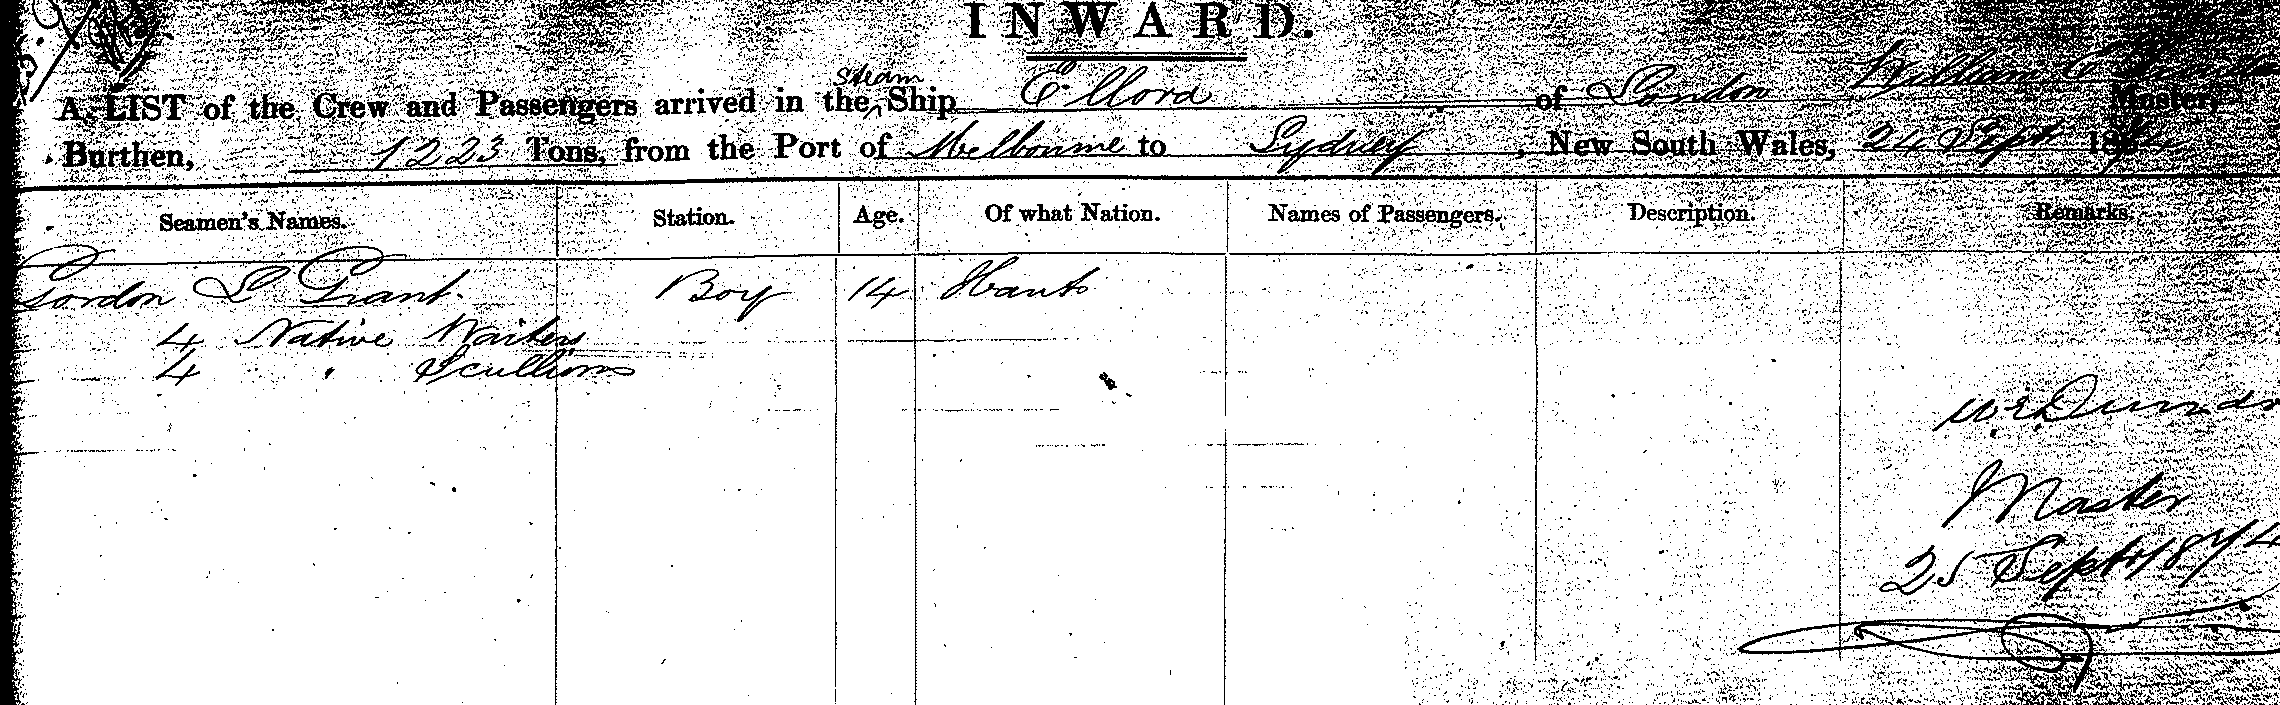 INWARD.
A LIST of the Crew and Passengers arrived in the steam Ship Ellora of London William Master,
Burthen, 1223 Tons, from the Port of Melbourne to Sydney, New South Wales, 24 Sept 1874
Seamen's Names. Station. Age. Of what Nation. Names of Passengers. Description. Remarks
Gordon S Grant Boy 14 Hants
4 Native Waiters
4 " Scullions
Master
25 Sept 1874